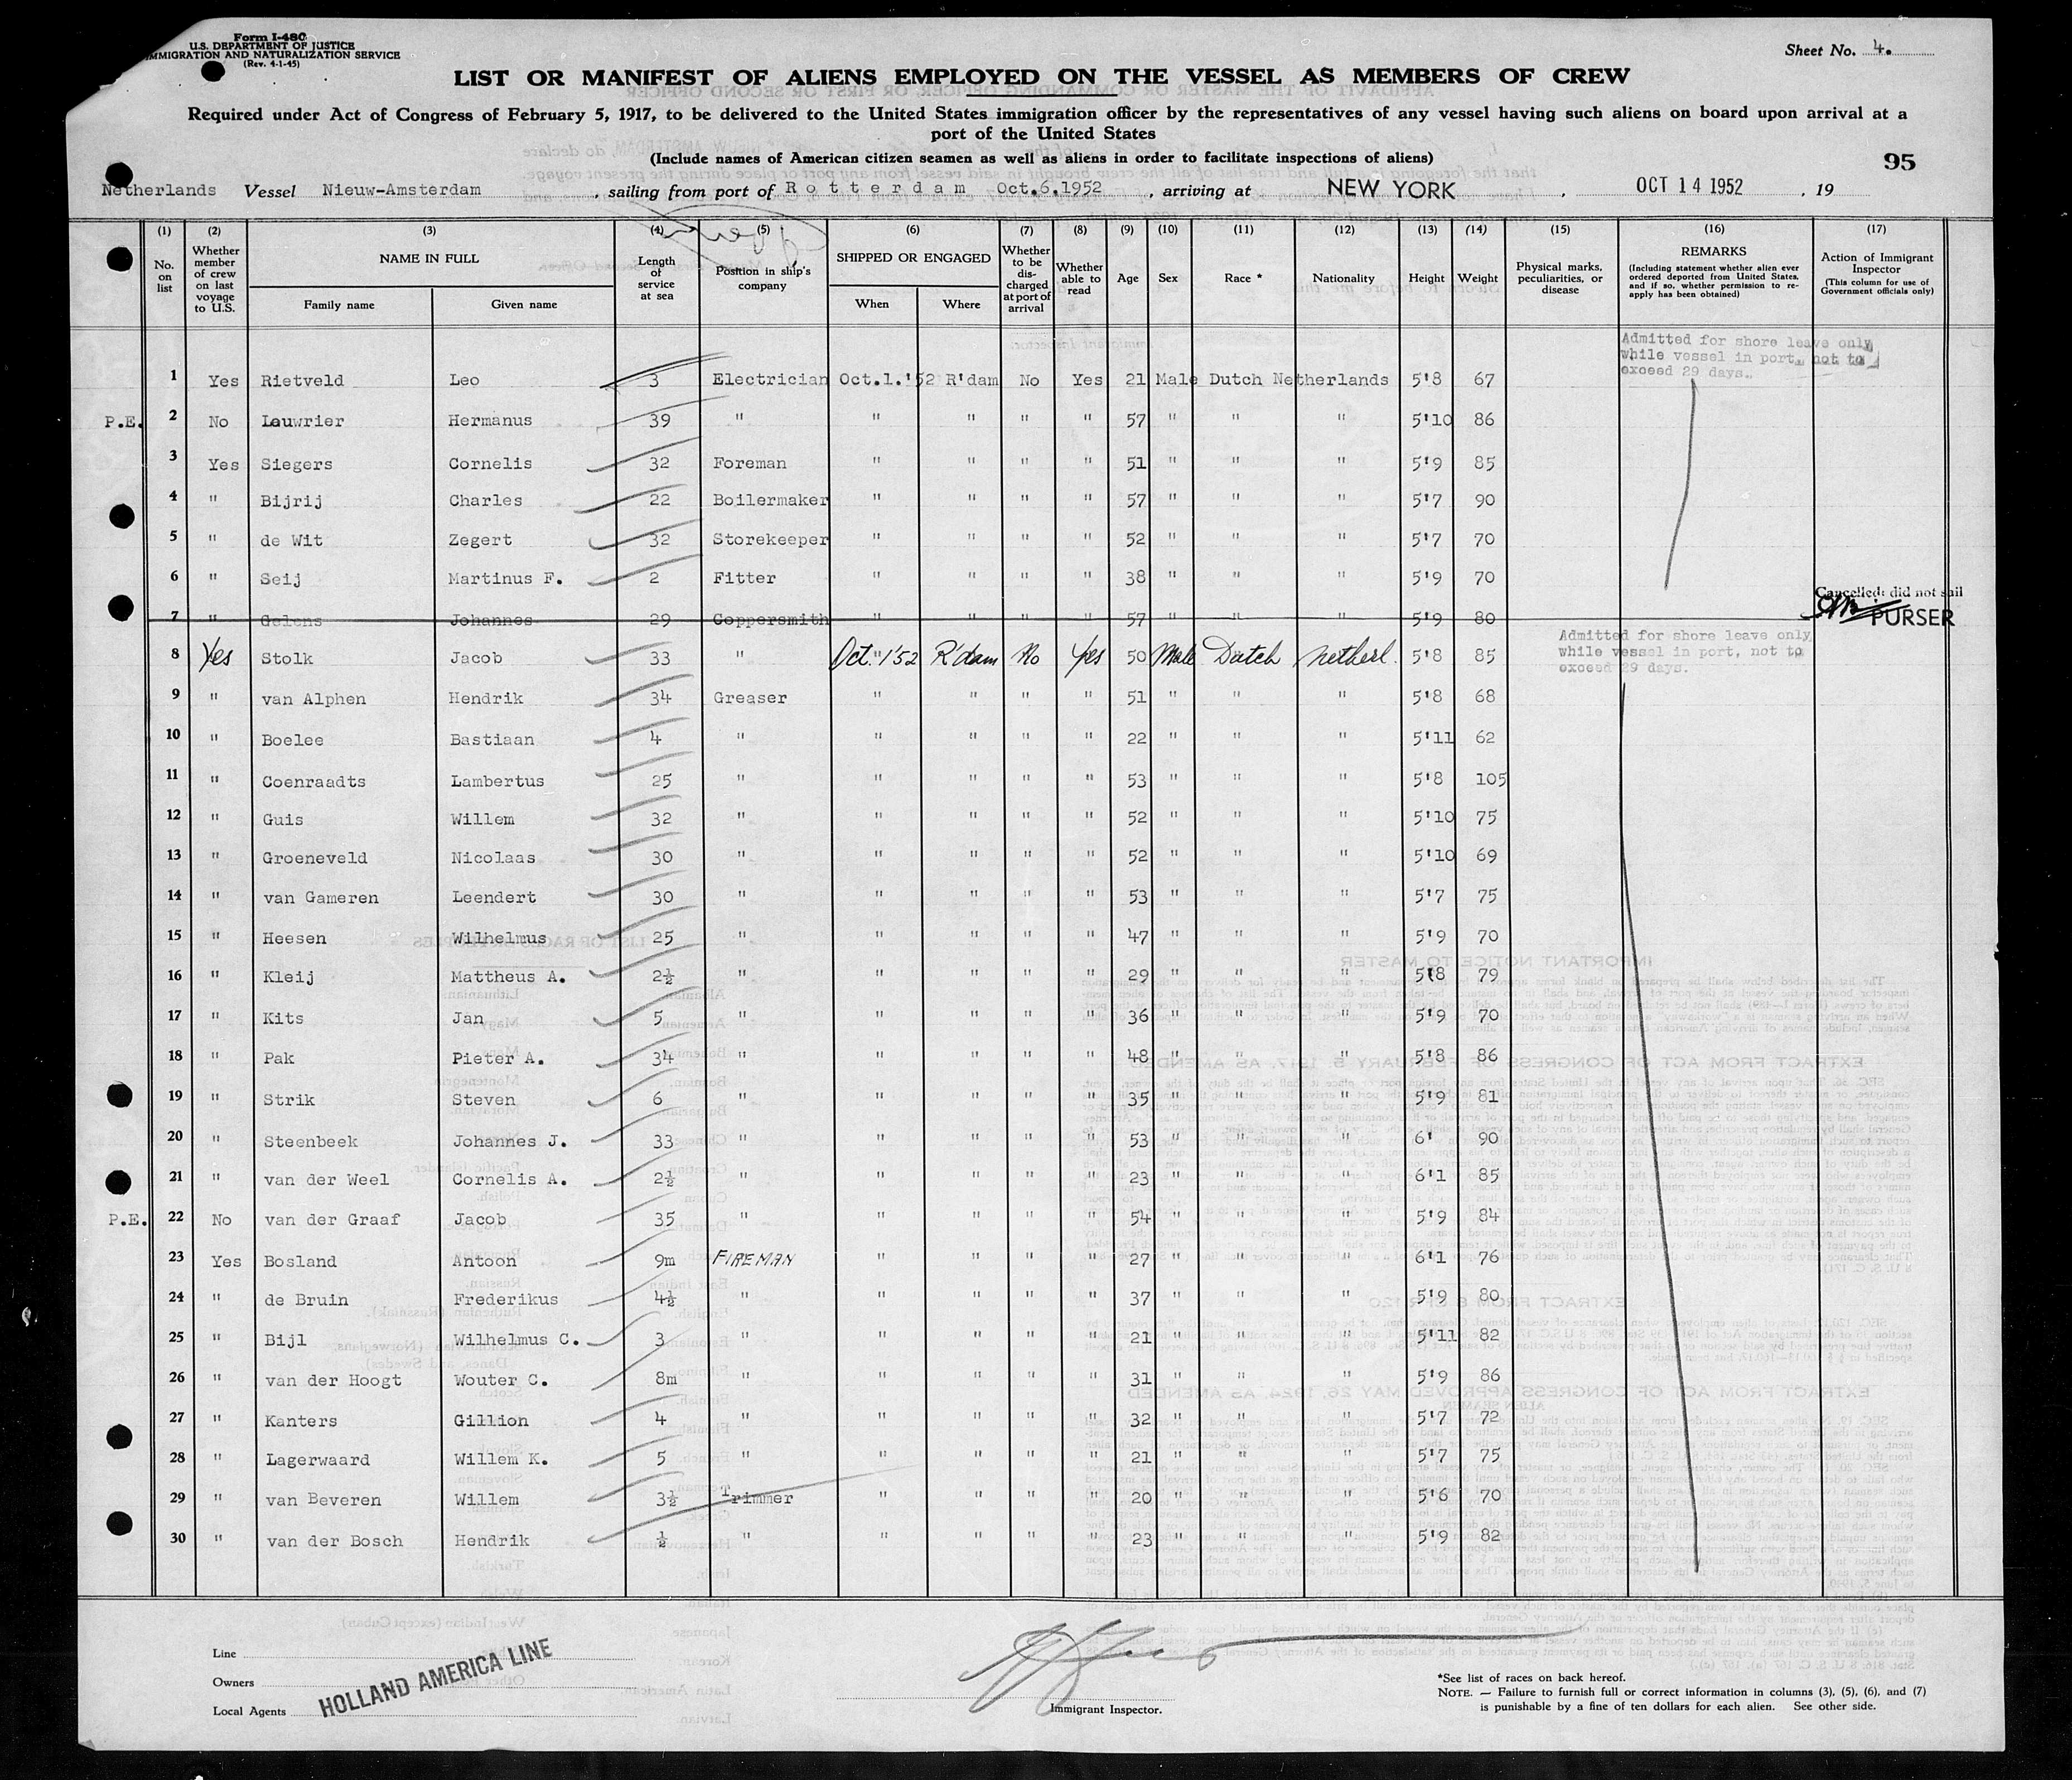 Form I-480
U.S. DEPARTMENT OF JUSTICE
IMMIGRATION AND NATURALIZATION SERVICE
(Rev. 4-1-45)
Sheet No. 4.
LIST OR MANIFEST OF ALIENS EMPLOYED ON THE VESSEL AS MEMBERS OF CREW
Required under Act of Congress of February 5, 1917, to be delivered to the United States immigration officer by the representatives of any vessel having such aliens on board upon arrival at a
port of the United States
(Include names of American citizen seamen as well as aliens in order to facilitate inspections of aliens)
95
Netherlands Vessel Nieuw-Amsterdam, sailing from port of Rotterdam Oct.6.1952, arriving at NEW YORK, OCT 14 1952, 19
(1) No. on list
(2) Whether member of crew on last voyage to U.S.
(3) NAME IN FULL
Family name Given name
(4) Length of service at sea
(5) Position in ship's company
(6) SHIPPED OR ENGAGED
When Where
(7) Whether to be discharged at port of arrival
(8) Whether able to read
(9) Age
(10) Sex
(11) Race *
(12) Nationality
(13) Height
(14) Weight
(15) Physical marks, peculiarities, or disease
(16) REMARKS
(Including statement whether alien ever ordered deported from United States, and if so, whether permission to re-apply has been obtained)
(17) Action of Immigrant Inspector
(This column for use of Government officials only)
Admitted for shore leave only
while vessel in port, not to
exceed 29 days.
1 Yes Rietveld Leo 3 Electrician Oct.1.'52 R'dam No Yes 21 Male Dutch Netherlands 5'8 67
P.E. 2 No Lauwrier Hermanus 39 " " " " " 57 " " " 5'10 86
3 Yes Siegers Cornelis 32 Foreman " " " " 51 " " " 5'9 85
4 " Bijrij Charles 22 Boilermaker " " " " 57 " " " 5'7 90
5 " de Wit Zegert 32 Storekeeper " " " " 52 " " " 5'7 70
6 " Seij Martinus F. 2 Fitter " " " " 38 " " " 5'9 70
Cancelled: did not sail
7 " Gelens Johannes 29 Coppersmith " " " " 57 " " " 5'9 80 PURSER
Admitted for shore leave only
while vessel in port, not to
exceed 29 days.
8 Yes Stolk Jacob 33 " Oct. 1'52 R'dam No Yes 50 Male Dutch Netherl. 5'8 85
9 " van Alphen Hendrik 34 Greaser " " " " 51 " " " 5'8 68
10 " Boelee Bastiaan 4 " " " " " 22 " " " 5'11 62
11 " Coenraadts Lambertus 25 " " " " " 53 " " " 5'8 105
12 " Guis Willem 32 " " " " " 52 " " " 5'10 75
13 " Groeneveld Nicolaas 30 " " " " " 52 " " " 5'10 69
14 " van Gameren Leendert 30 " " " " " 53 " " " 5'7 75
15 " Heesen Wilhelmus 25 " " " " " 47 " " " 5'9 70
16 " Kleij Mattheus A. 2½ " " " " " 29 " " " 5'8 79
17 " Kits Jan 5 " " " " " 36 " " " 5'9 70
18 " Pak Pieter A. 34 " " " " " 48 " " " 5'8 86
19 " Strik Steven 6 " " " " " 35 " " " 5'9 81
20 " Steenbeek Johannes J. 33 " " " " " 53 " " " 6' 90
21 " van der Weel Cornelis A. 2½ " " " " " 23 " " " 6'1 85
P.E. 22 No van der Graaf Jacob 35 " " " " " 54 " " " 5'9 84
23 Yes Bosland Antoon 9m FIREMAN " " " " 27 " " " 6'1 76
24 " de Bruin Frederikus 4½ " " " " " 37 " " " 5'9 80
25 " Bijl Wilhelmus C. 3 " " " " " 21 " " " 5'11 82
26 " van der Hoogt Wouter C. 8m " " " " " 31 " " " 5'9 86
27 " Kanters Gillion 4 " " " " " 32 " " " 5'7 72
28 " Lagerwaard Willem K. 5 " " " " " 21 " " " 5'7 75
29 " van Beveren Willem 3½ Trimmer " " " " 20 " " " 5'6 70
30 " van der Bosch Hendrik ½ " " " " " 23 " " " 5'9 82
Line
Owners
Local Agents
HOLLAND AMERICA LINE
Immigrant Inspector.
*See list of races on back hereof.
NOTE. — Failure to furnish full or correct information in columns (3), (5), (6), and (7)
is punishable by a fine of ten dollars for each alien. See other side.